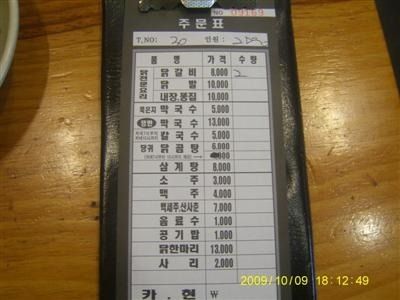 NO 09169
주 문 표
T.NO: 20 인원: 2
품 명 가 격 수 량
닭 갈 비 8,000 2
닭 발 10,000
내장,똥집 10,000
묵은지 막 국 수 5,000
쟁반 막 국 수 13,000
칼 국 수 5,000
당귀 닭 곰 탕 6,000
삼 계 탕 8,000
소 주 3,000
맥 주 4,000
백세주,산사춘 7,000
음 료 수 1,000
공 기 밥 1,000
닭한마리 13,000
사 리 2,000
카 . 현 ₩
2009/10/09 18:12:49